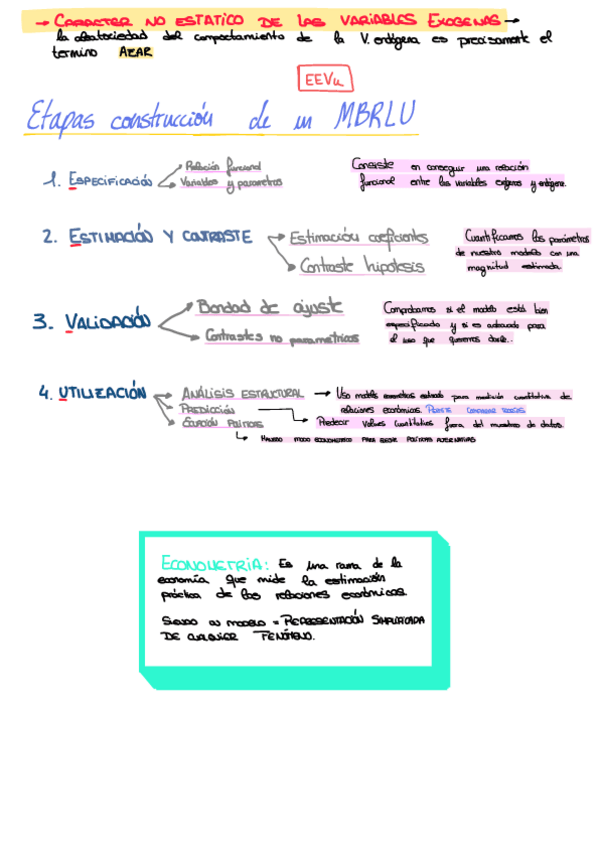 → CARACTER NO ESTATICO DE LAS VARIABLES EXOGENAS →
la aleatoriedad del comportamiento de la V. endógena es precisamente el
termino AZAR
EEVu
Etapas construcción de un MBRLU
1. ESPECIFICACIÓN
Relación funcional
Variables y parametros
Consiste en conseguir una relación
funcional entre las variables exógenas y endógena.
2. ESTIMACIÓN Y CONTRASTE
Estimación coeficientes
Contraste hipótesis
Cuantificamos los parámetros
de nuestro modelo con una
magnitud estimada
3. VALIDACIÓN
Bondad de ajuste
Contrastes no parametricos
Comprobamos si el modelo está bien
especificado y si es adecuado para
el uso que queremos darle..
4. UTILIZACIÓN
ANÁLISIS ESTRUCTURAL → Uso modelo econométrico estimado para medición cuantitativa de
relaciones económicas.
PREDICCIÓN → Predecir valores cuantitativos fuera del muestreo de datos.
POLÍTICAS
ECONOMETRIA: Es una rama de la
economía que mide la estimación
práctica de las relaciones económicas.
Siendo un MODELO = REPRESENTACIÓN SIMPLIFICADA
DE CUALQUIER FENÓMENO.